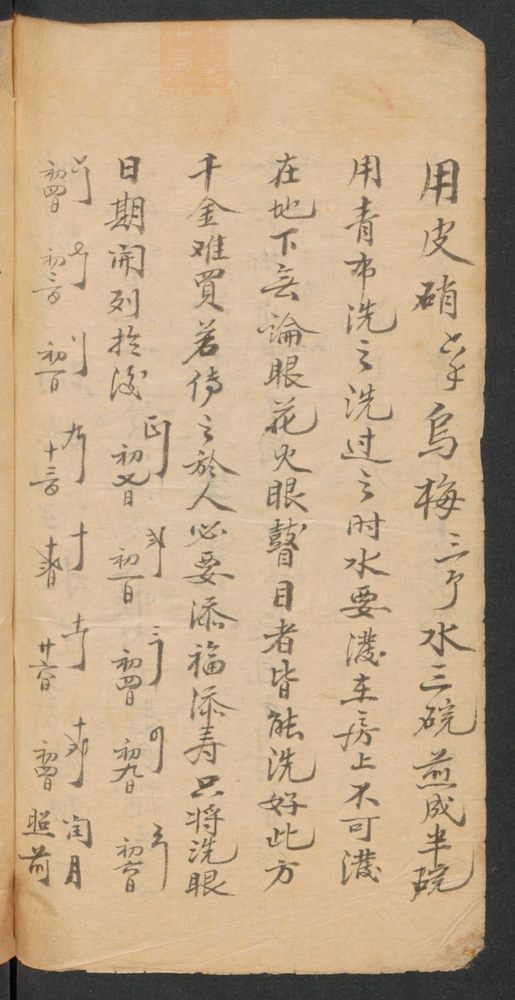 用皮硝六子烏梅三个水三碗煎成半碗
用青布洗之洗过之时水要潑在房上不可潑
在地下無論眼花火眼瞽目者皆能洗好此方
千金难買若传之於人必要添福添寿只将洗眼
日期開列於後
正月 初七日 二月 初一日 三月 初四日 四月 初九日 五月 初六日
六月 初四日 七月 初三日 八月 初一日 九月 十三日 十月 十一月 廿六日 十二月 初四日 閏月 照前